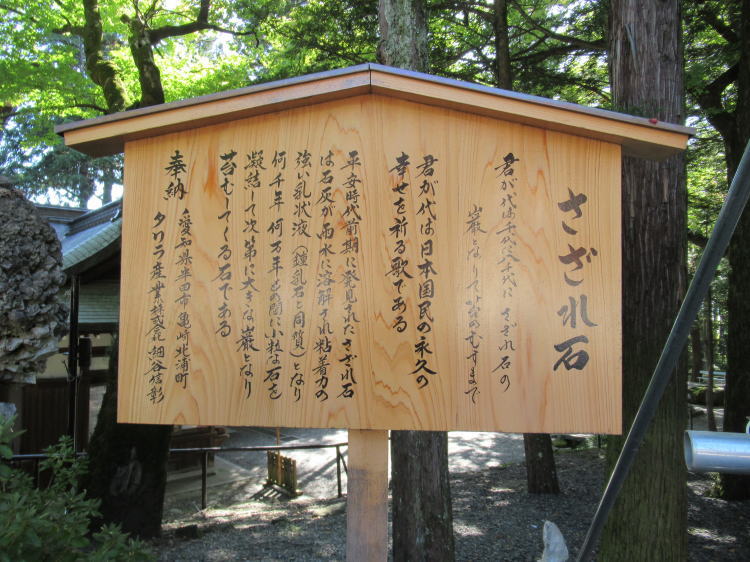 さざれ石
君が代は千代に八千代に さざれ石の
巌となりて苔のむすまで
君が代は日本国民の永久の
幸せを祈る歌である
平安時代前期に発見されたさざれ石
は石灰が雨水に溶解され粘着力の
強い乳状液（鍾乳石と同質）となり
何千年 何万年もの間に小粒な石を
凝結して次第に大きな巌となり
苔むしてくる石である
奉納 愛知県半田市亀崎北浦町
タワラ産業株式会社 細谷信彰